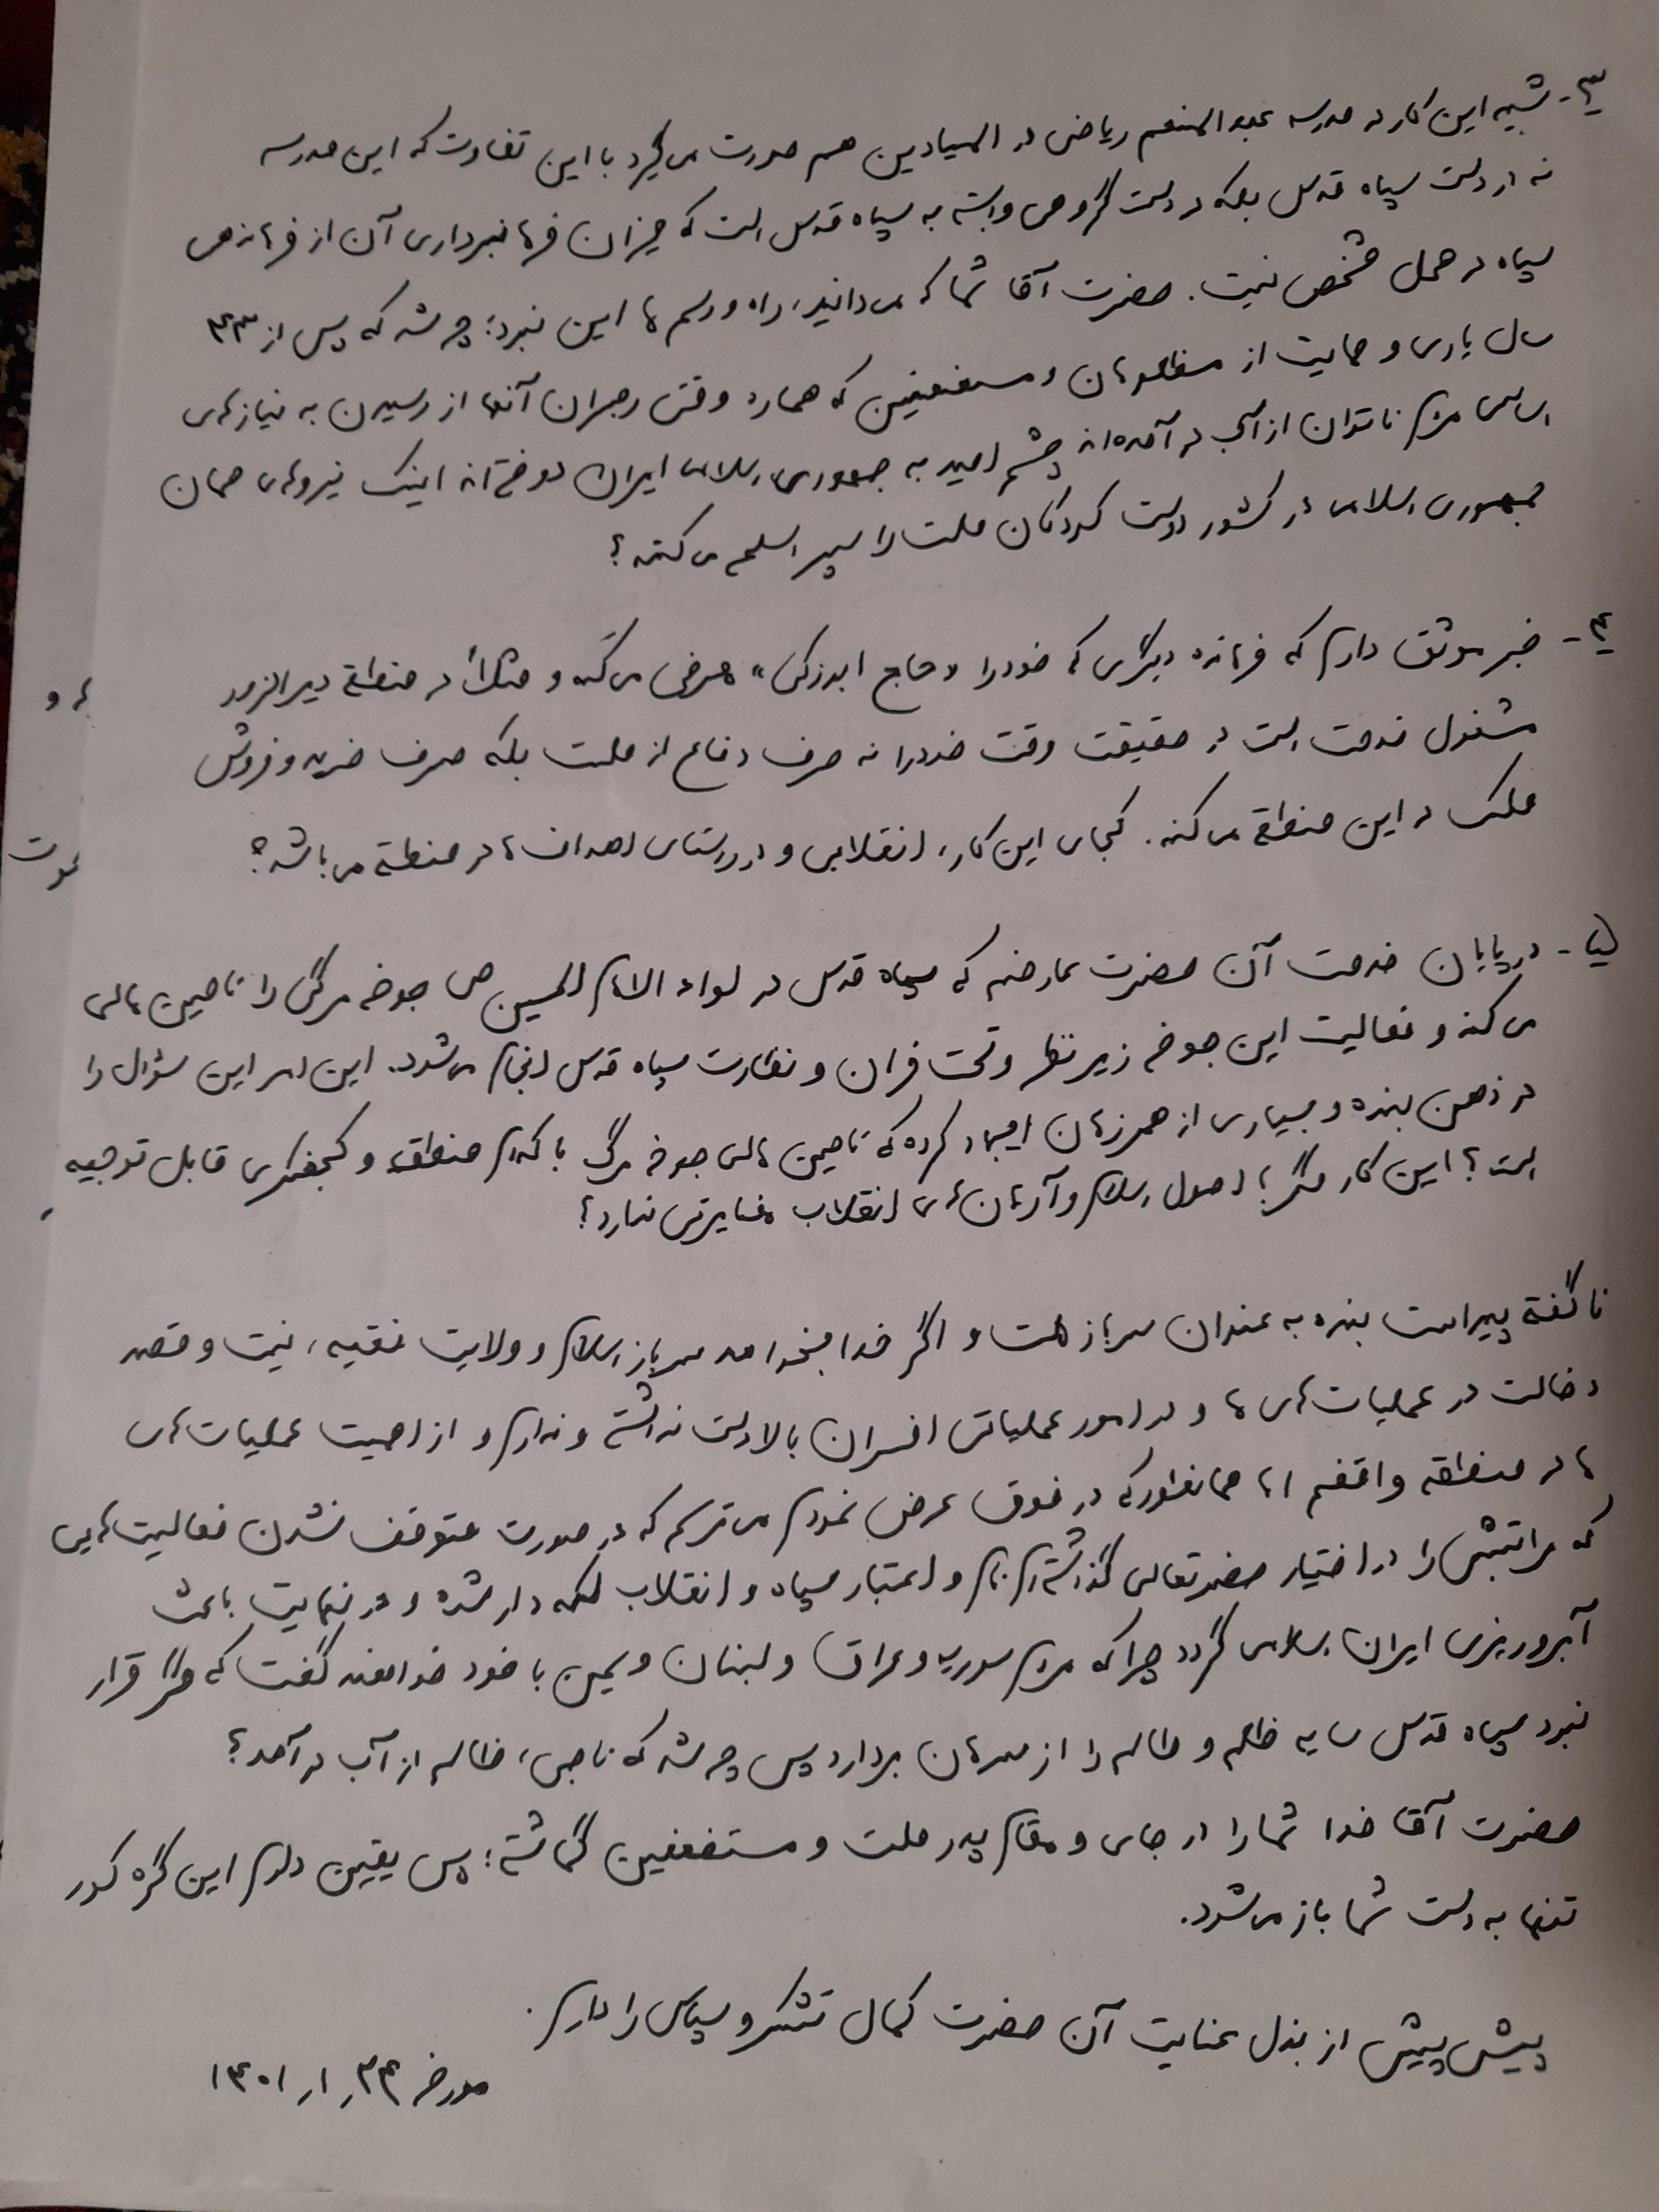 ۳- شبیه این کار در مدرسه عبدالمنعم ریاضی در المیادین هم صورت می‌گیرد با این تفاوت که این مدرسه
نه در دست سپاه قدس بلکه در دست گروهی وابسته به سپاه قدس است که میزان فرمانبرداری آن از فرماندهی
سپاه در محل مشخص نیست. حضرت آقا شما که می‌دانید، راه و رسم ما این نبود؛ چه شد که پس از ۴۳
سال یاری و حمایت از مظلومان و مستضعفین که همواره وقتی رهبران آنها از رسیدن به نیازهای
اساسی مردم ناتوان از آب در آمده‌اند چشم امید به جمهوری اسلامی ایران دوخته‌اند اینک نیروهای همان
جمهوری اسلامی در کشور دوست کودکان ملت را سپر اسلحه می‌کنند؟
۴- خبر موثق دارم که فرمانده دیگری که خود را «حاج ابوزکی» معرفی می‌کند و مثلاً در منطقه دیرالزور
مشغول خدمت است در حقیقت وقت خود را نه صرف دفاع از ملت بلکه صرف خرید و فروش
ملک در این منطقه می‌کند. کجای این کار، انقلابی و در راستای اهداف ما در منطقه می‌باشد؟
۵- در پایان خدمت آن حضرت عارضم که سپاه قدس در لواء الامام الحسین ص جوخه مرگی را تامین مالی
می‌کند و فعالیت این جوخه زیر نظر و تحت فرمان و نظارت سپاه قدس انجام می‌شود. این امر این سؤال را
در ذهن بنده و بسیاری از همرزمان ایجاد کرده که تامین مالی جوخه مرگ با کدام منطق و کجفکری قابل توجیه
است؟ این کار مگر با اصول اسلام و آرمان‌های انقلاب مغایرتی ندارد؟
ناگفته پیداست بنده به عنوان سرباز ملت و اگر خدا بخواهد سرباز اسلام و ولایت فقیه، نیت و قصد
دخالت در عملیات‌های ما و در امور عملیاتی افسران بالادست نداشته و ندارم و از اهمیت عملیات‌های
ما در منطقه واقفم اما همانطور که در فوق عرض نمودم می‌ترسم که در صورت متوقف نشدن فعالیت‌هایی
که مراتبش را در اختیار حضرتعالی گذاشته‌ام نام و اعتبار سپاه و انقلاب لکه دار شده و در نهایت باعث
آبروریزی ایران اسلامی گردد چرا که مردم سوریه و عراق و لبنان و یمن با خود خواهند گفت که مگر قرار
نبود سپاه قدس سایه ظلم و ظالم را از سرمان بردارد پس چه شد که ناجی، ظالم از آب در آمد؟
حضرت آقا خدا شما را در جای و مقام پدر ملت و مستضعفین گماشته؛ پس یقین دارم این گره کور
تنها به دست شما باز می‌شود.
پیش پیش از بذل عنایت آن حضرت کمال تشکر و سپاس را دارم.
مورخه ۱۴۰۱/۱/۲۴